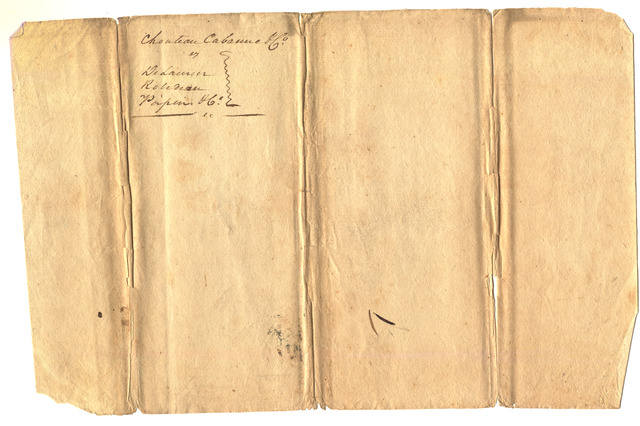 Chouteau Cabanne & Co
vs
Delaurier
Robideau
Papin & Co